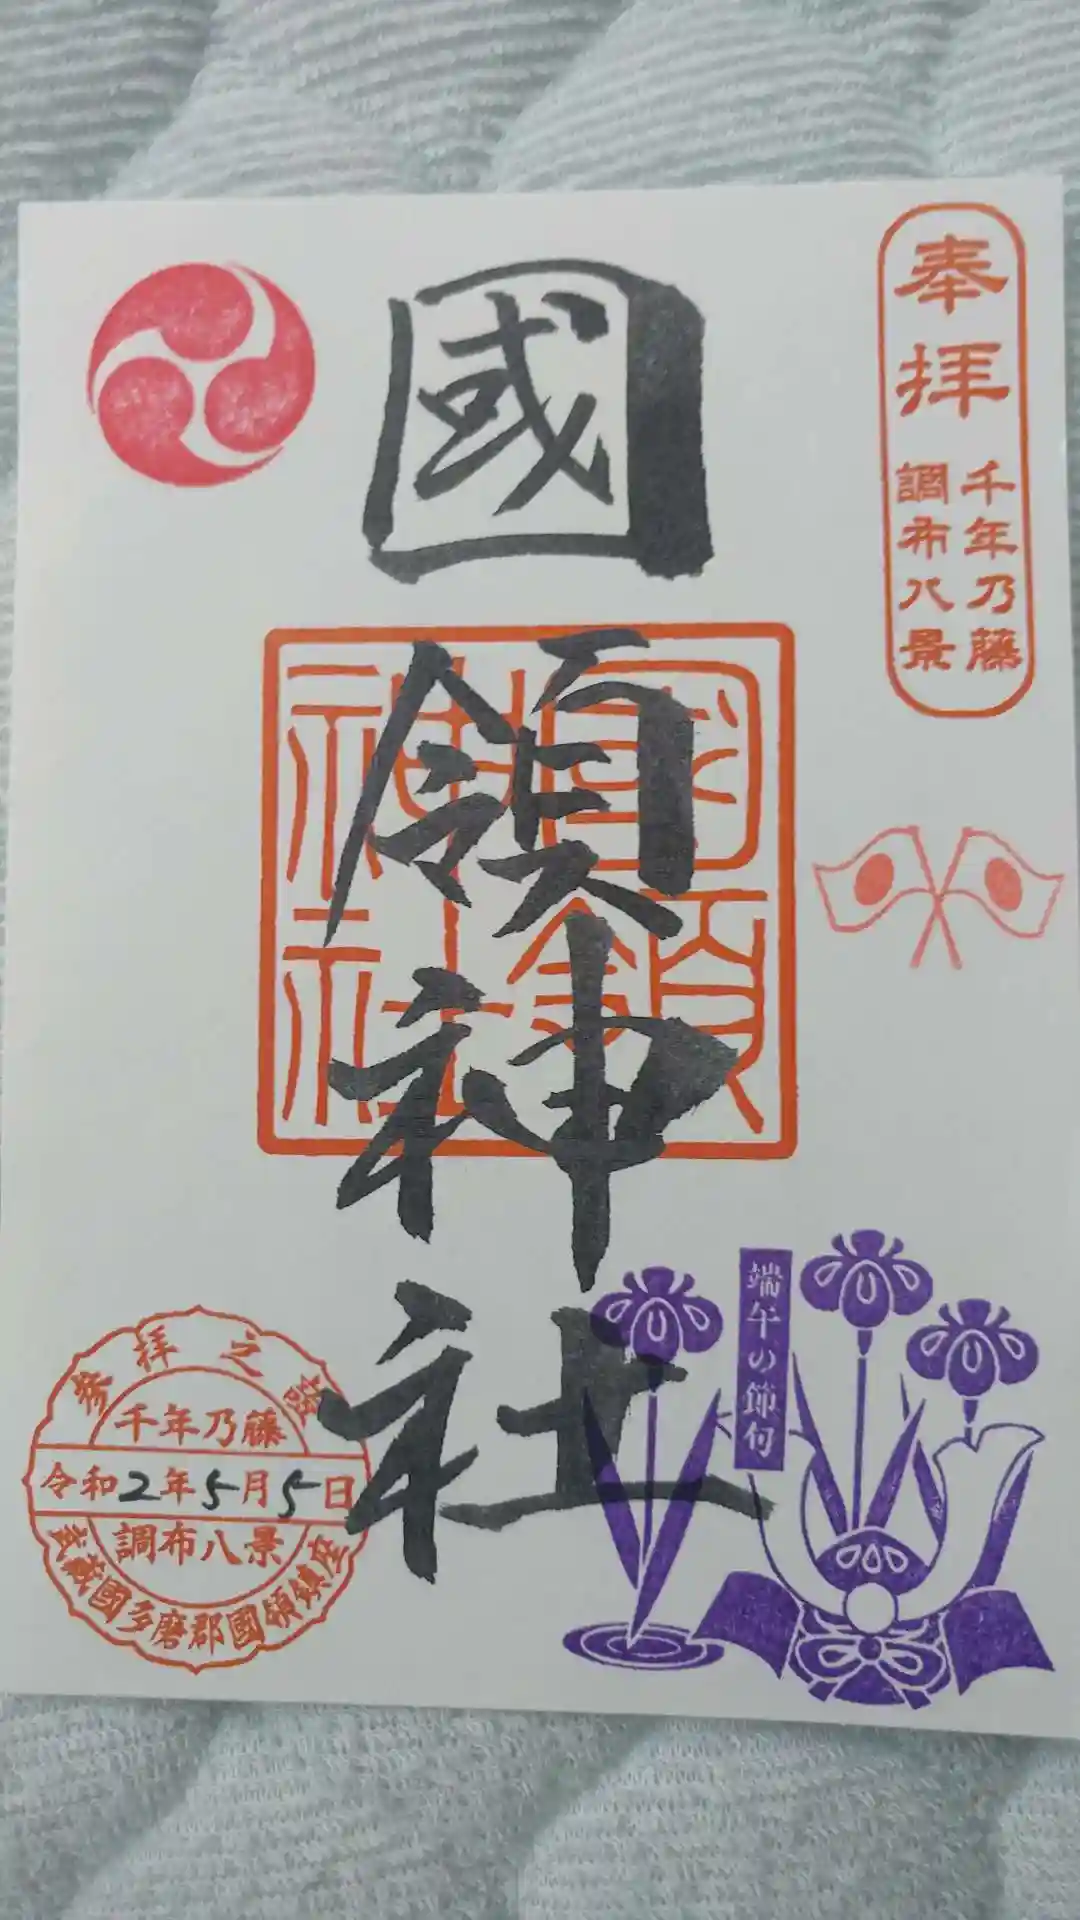 奉拝
千年乃藤
調布八景
國領神社
國領
神社
端午の節句
參拝之證
千年乃藤
令和2年5月5日
調布八景
武蔵國多磨郡國領鎮座